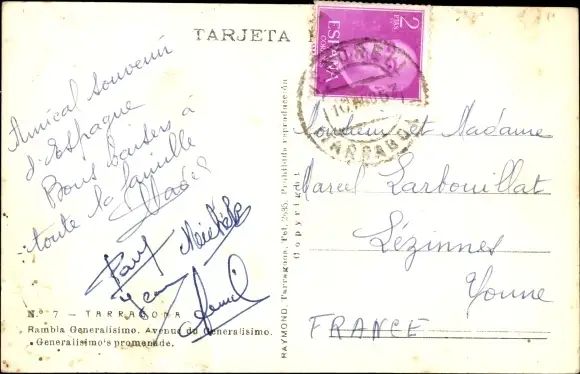 TARJETA
Amical souvenir
d'Espagne
Bons baisers à
toute la famille
Paul Michèle
Jean
N.º 7 - TARRAGONA
Rambla Generalísimo. Avenue du Generalísimo.
Generalísimo's promenade.
RAYMOND. Tarragona. Tel. 2635. Prohibida reproducción
Copyright
2
PTAS
CORREOS
ESPAÑA
Monsieur et Madame
Marcel Larbouillat
Lézinnes
Yonne
FRANCE